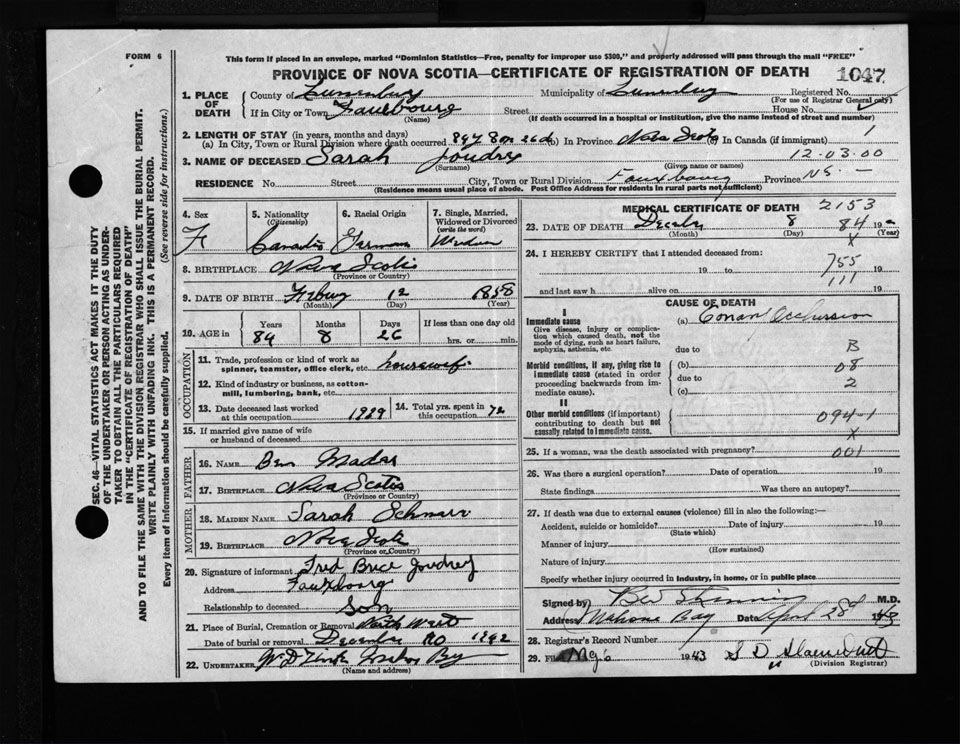 FORM 6
This form if placed in an envelope, marked "Dominion Statistics—Free, penalty for improper use $300," and properly addressed will pass through the mail "FREE"
PROVINCE OF NOVA SCOTIA—CERTIFICATE OF REGISTRATION OF DEATH
1047
1. PLACE OF DEATH
County of Lunenburg Municipality of Lunenburg Registered No.
(For use of Registrar General only)
If in City or Town Street House No.
(Name) (If death occurred in a hospital or institution, give the name instead of street and number)
2. LENGTH OF STAY (in years, months and days)
(a) In City, Town or Rural Division where death occurred (b) In Province Nova Scotia (c) In Canada (if immigrant) 1
12-03-00
3. NAME OF DECEASED Sarah Joudry
(Surname) (Given name or names)
RESIDENCE No. Street City, Town or Rural Division Province N.S.
(Residence means usual place of abode. Post Office Address for residents in rural parts not sufficient)
4. Sex F
5. Nationality (Citizenship)
6. Racial Origin German
7. Single, Married, Widowed or Divorced (write the word)
8. BIRTHPLACE Nova Scotia
(Province or Country)
9. DATE OF BIRTH 12 1858
(Month) (Day) (Year)
10. AGE in
Years Months Days If less than one day old
84 8 26 hrs. or min.
OCCUPATION
11. Trade, profession or kind of work as spinner, teamster, office clerk, etc. housewife
12. Kind of industry or business, as cotton-mill, lumbering, bank, etc.
13. Date deceased last worked at this occupation 1929
14. Total yrs. spent in this occupation 72
15. If married give name of wife or husband of deceased
FATHER
16. NAME Ben Mader
17. BIRTHPLACE Nova Scotia
(Province or Country)
MOTHER
18. MAIDEN NAME Sarah
19. BIRTHPLACE Nova Scotia
(Province or Country)
20. Signature of informant Fred Joudrey
Address Fauxbourg
Relationship to deceased Son
21. Place of Burial, Cremation or Removal North West
Date of burial or removal December 10 1942
22. UNDERTAKER
(Name and address)
MEDICAL CERTIFICATE OF DEATH 2153
23. DATE OF DEATH 8 84 19
(Month) (Day) (Year)
x
24. I HEREBY CERTIFY that I attended deceased from:
19 to 755 19
and last saw h alive on 111 19
CAUSE OF DEATH
I
Immediate cause
Give disease, injury or complication which caused death, not the mode of dying, such as heart failure, asphyxia, asthenia, etc.
(a) Occlussion
due to B
Morbid conditions, if any, giving rise to immediate cause (stated in order proceeding backwards from immediate cause).
(b) 08
due to 2
(c)
II
Other morbid conditions (if important) contributing to death but not causally related to immediate cause.
094-1
x
25. If a woman, was the death associated with pregnancy? 001
26. Was there a surgical operation? Date of operation 19
State findings Was there an autopsy?
27. If death was due to external causes (violence) fill in also the following:—
Accident, suicide or homicide? Date of injury 19
(State which)
Manner of injury
(How sustained)
Nature of injury
Specify whether injury occurred in industry, in home, or in public place
Signed by M.D.
Address Mahone Bay Date April 28 1943
28. Registrar's Record Number
29. Filed 1943
(Division Registrar)
SEC. 46—VITAL STATISTICS ACT MAKES IT THE DUTY
OF THE UNDERTAKER OR PERSON ACTING AS UNDER-
TAKER TO OBTAIN ALL THE PARTICULARS REQUIRED
IN THE "CERTIFICATE OF REGISTRATION OF DEATH"
AND TO FILE THE SAME WITH THE DIVISION REGISTRAR WHO SHALL ISSUE THE BURIAL PERMIT.
WRITE PLAINLY WITH UNFADING INK. THIS IS A PERMANENT RECORD.
Every item of information should be carefully supplied. (See reverse side for instructions.)